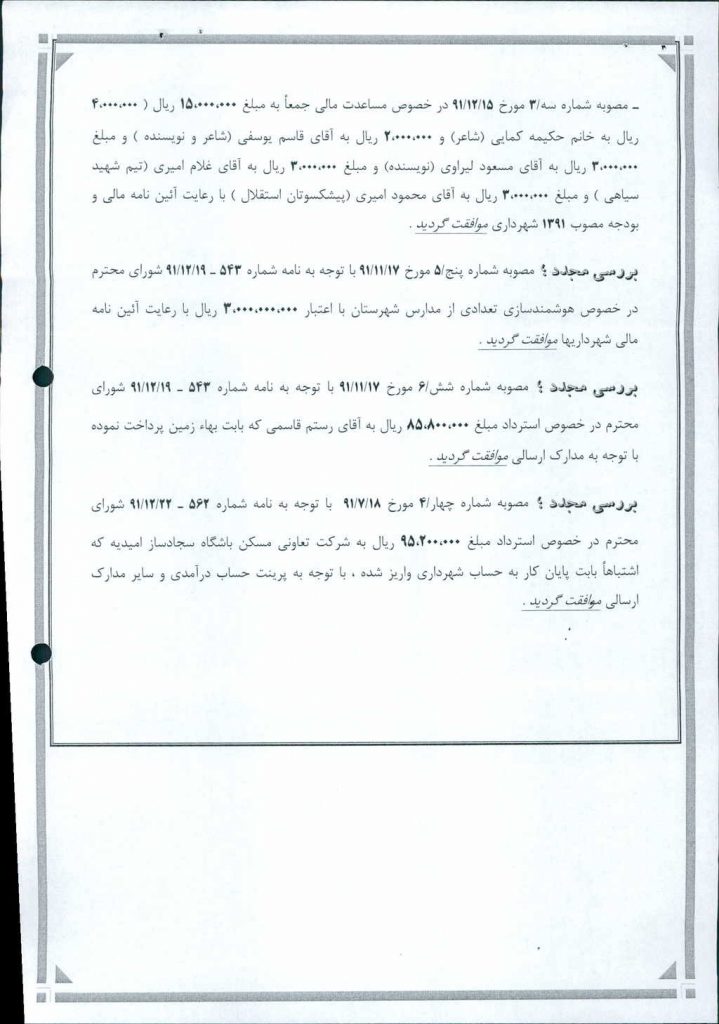 ـ مصوبه شماره سه/۳ مورخ ۹۱/۱۲/۱۵ در خصوص مساعدت مالی جمعاً به مبلغ ۱۵،۰۰۰،۰۰۰ ریال ( ۴،۰۰۰،۰۰۰
ریال به خانم حکیمه کمایی (شاعر) و ۲،۰۰۰،۰۰۰ ریال به آقای قاسم یوسفی (شاعر و نویسنده ) و مبلغ
۳،۰۰۰،۰۰۰ ریال به آقای مسعود لیراوی (نویسنده) و مبلغ ۳،۰۰۰،۰۰۰ ریال به آقای غلام امیری (تیم شهید
سیاهی ) و مبلغ ۳،۰۰۰،۰۰۰ ریال به آقای محمود امیری (پیشکسوتان استقلال ) با رعایت آئین نامه مالی و
بودجه مصوب ۱۳۹۱ شهرداری موافقت گردید .
بررسی مجدد ؛ مصوبه شماره پنج/۵ مورخ ۹۱/۱۱/۱۷ با توجه به نامه شماره ۵۴۳ ـ ۹۱/۱۲/۱۹ شورای محترم
در خصوص هوشمندسازی تعدادی از مدارس شهرستان با اعتبار ۳،۰۰۰،۰۰۰،۰۰۰ ریال با رعایت آئین نامه
مالی شهرداریها موافقت گردید .
بررسی مجدد ؛ مصوبه شماره شش/۶ مورخ ۹۱/۱۱/۱۷ با توجه به نامه شماره ۵۴۳ ـ ۹۱/۱۲/۱۹ شورای
محترم در خصوص استرداد مبلغ ۸۵،۸۰۰،۰۰۰ ریال به آقای رستم قاسمی که بابت بهاء زمین پرداخت نموده
با توجه به مدارک ارسالی موافقت گردید .
بررسی مجدد ؛ مصوبه شماره چهار/۴ مورخ ۹۱/۷/۱۸ با توجه به نامه شماره ۵۶۲ ـ ۹۱/۱۲/۲۲ شورای
محترم در خصوص استرداد مبلغ ۹۵،۲۰۰،۰۰۰ ریال به شرکت تعاونی مسکن باشگاه سجادساز امیدیه که
اشتباهاً بابت پایان کار به حساب شهرداری واریز شده ، با توجه به پرینت حساب درآمدی و سایر مدارک
ارسالی موافقت گردید .